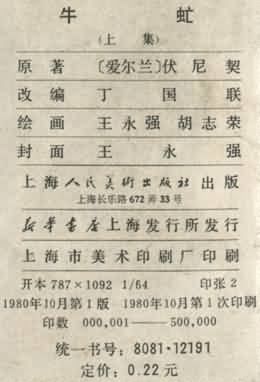 牛虻
(上集)
原著 〔爱尔兰〕伏尼契
改编 丁国联
绘画 王永强 胡志荣
封面 王永强
上海人民美术出版社出版
上海长乐路672弄33号
新华书店上海发行所发行
上海市美术印刷厂印刷
开本787×1092 1/64 印张2
1980年10月第1版 1980年10月第1次印刷
印数 000,001——500,000
统一书号：8081·12191
定价：0.22元